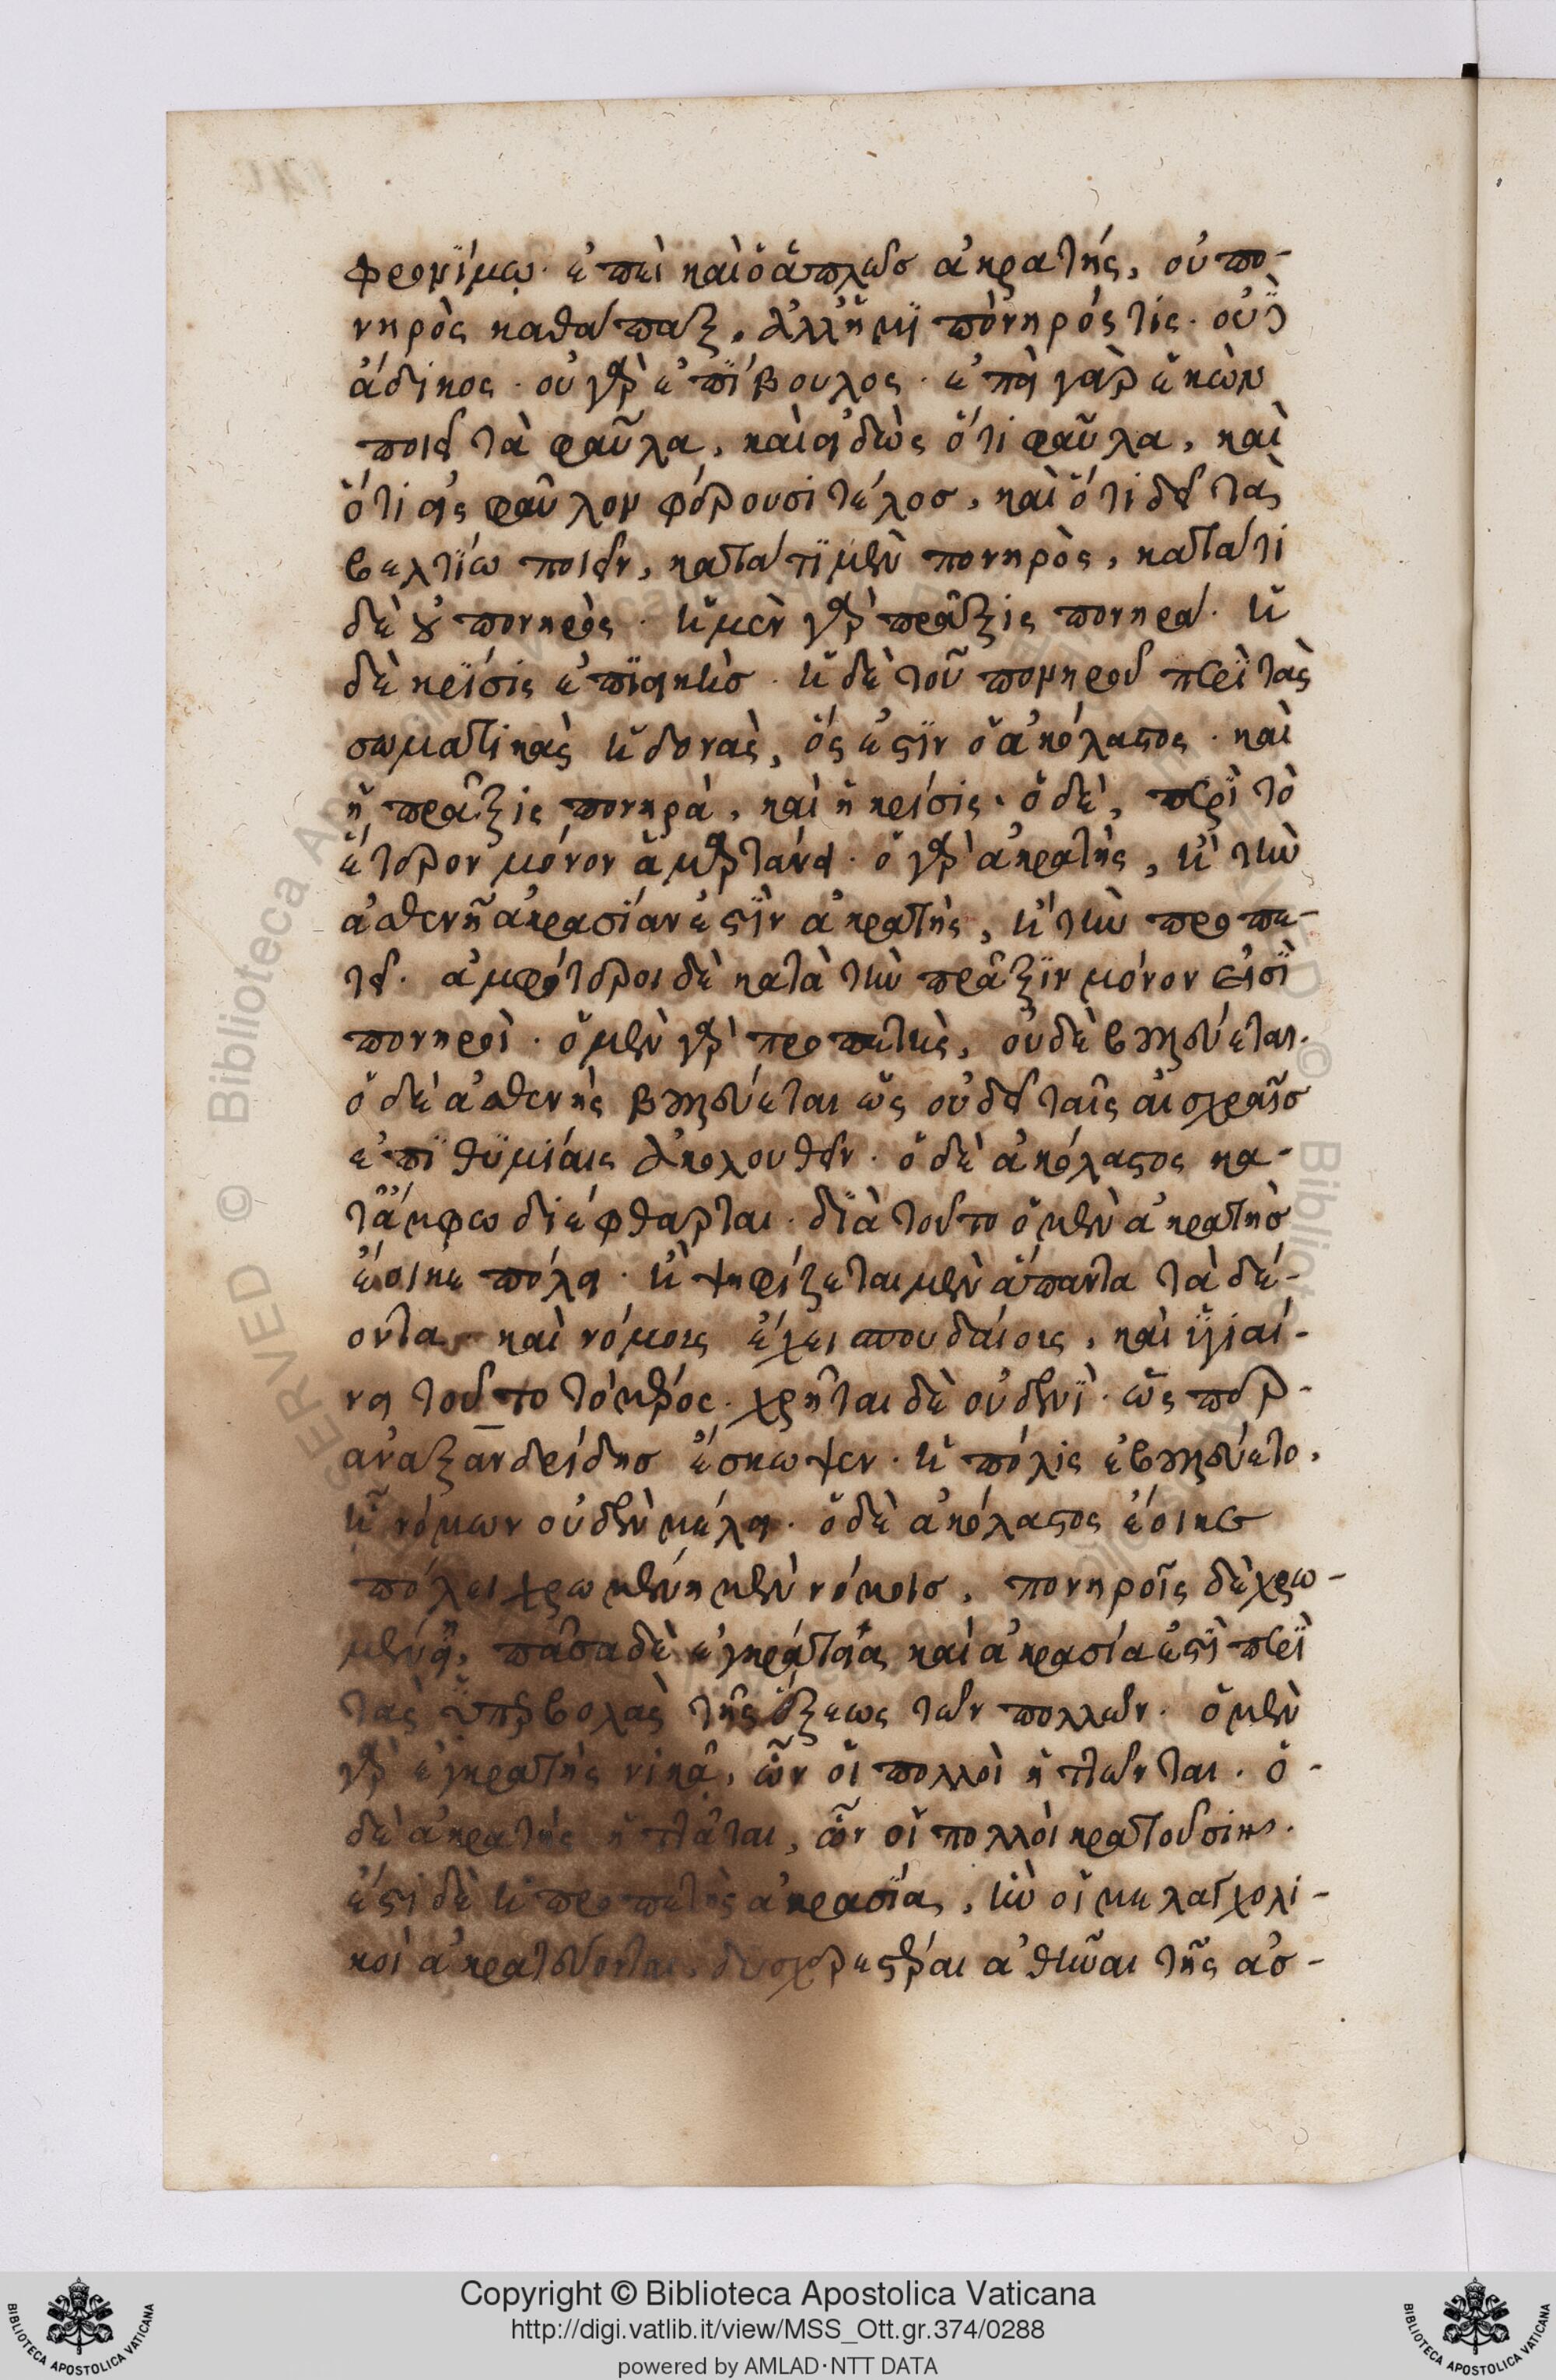 φρονίμῳ· ἐπεὶ καὶ ὁ ἁπλῶσ ἀκρατής, οὐ πο-
νηρὸς καθάπαξ, ἀλλ' ἡμιπόνηρός τίς· οὐδ'
άδικος· οὐ γὰρ ἐπίβουλος· ἐπεὶ γὰρ ἑκὼν
ποιεῖ τὰ φαῦλα, καὶ εἰδὼς ὅτι φαῦλα, καὶ
ὅτι εἰς φαῦλον φέρουσι τέλοσ, καὶ ὅτι δεῖ τὰ
βελτίω ποιεῖν, κατά τι μὲν πονηρὸς, κατά τι
δὲ οὐ πονηρὸς· ἡ μὲν γὰρ πρᾶξις πονηρά· ἡ
δὲ κρίσις ἐπιεικὴσ· ἡ δὲ τοῦ πονηροῦ περὶ τὰς
σωματικὰς ἡδονὰς, ός ἐστὶν ὁ ἀκόλαστος· καὶ
ἡ πρᾶξις πονηρὰ, καὶ ἡ κρίσις· ὁ δὲ, περὶ τὸ
ἕτερον μόνον ἁμαρτάνει· ὁ γὰρ ἀκρατὴς, ἢ τὴν
ἀσθενῆ ἀκρασίαν ἐστὶν ἀκρατὴς, ἢ τὴν προπε-
τῆ· ἀμφότεροι δὲ κατὰ τὴν πρᾶξιν μόνον εἰσὶ
πονηροὶ· ὁ μὲν γὰρ προπετὴς, οὐδὲ βουλεύεται·
ὁ δὲ ἀσθενὴς βουλεύεται ὡς οὐ δεῖ ταῖς αἰσχραῖσ
ἐπιθυμίαις ἀκολουθεῖν· ὁ δὲ ἀκόλαστος κα-
τάμφω διέφθαρται· διὰ τοῦτο ὁ μὲν ἀκρατὴσ
έοικε πόλει· ἣ ψηφίζεται μὲν ἅπαντα τὰ δέ-
οντα καὶ νόμοις έχει σπουδαίοις, καὶ ὑγιαί-
νει τοῦτο τὸ μέρος· χρῆται δὲ οὐδενὶ· ὥσπερ
ἀναξανδρίδησ έσκωψεν· ἡ πόλις ἐβουλεύετο,
ᾗ νόμων οὐδὲν μέλει· ὁ δὲ ἀκόλαστος έοικε
πόλει χρωμένη μὲν νόμοισ, πονηροῖς δὲ χρω-
μένῃ, πᾶσα δὲ ἐγκράτεια καὶ ἀκρασία ἐστὶ περὶ
τὰς ὑπερβολὰς τῆς έξεως τῶν πολλῶν· ὁ μὲν
γὰρ ἐγκρατὴς νικᾷ, ὧν οἱ πολλοὶ ἡττῶνται· ὁ-
δὲ ἀκρατὴς ἡττᾶται, ὧν οἱ πολλοὶ κρατοῦσιν·
έστι δὲ ἡ προπετὴς ἀκρασία, ἣν οἱ μελαγχολι-
κοὶ ἀκρατεύονται, δυσχερεστέραι ἀθῆναι τῆς ἀσ-
Copyright © Biblioteca Apostolica Vaticana
http://digi.vatlib.it/view/MSS_Ott.gr.374/0288
powered by AMLAD·NTT DATA